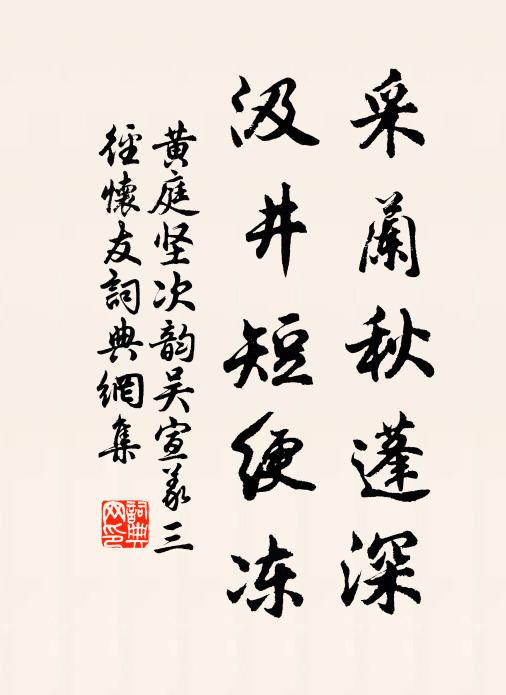 采蘭秋蓬深
汲井短綆冻
黄庭坚次韵吴宣义三
徑懷友詞典網集
詞典
网印